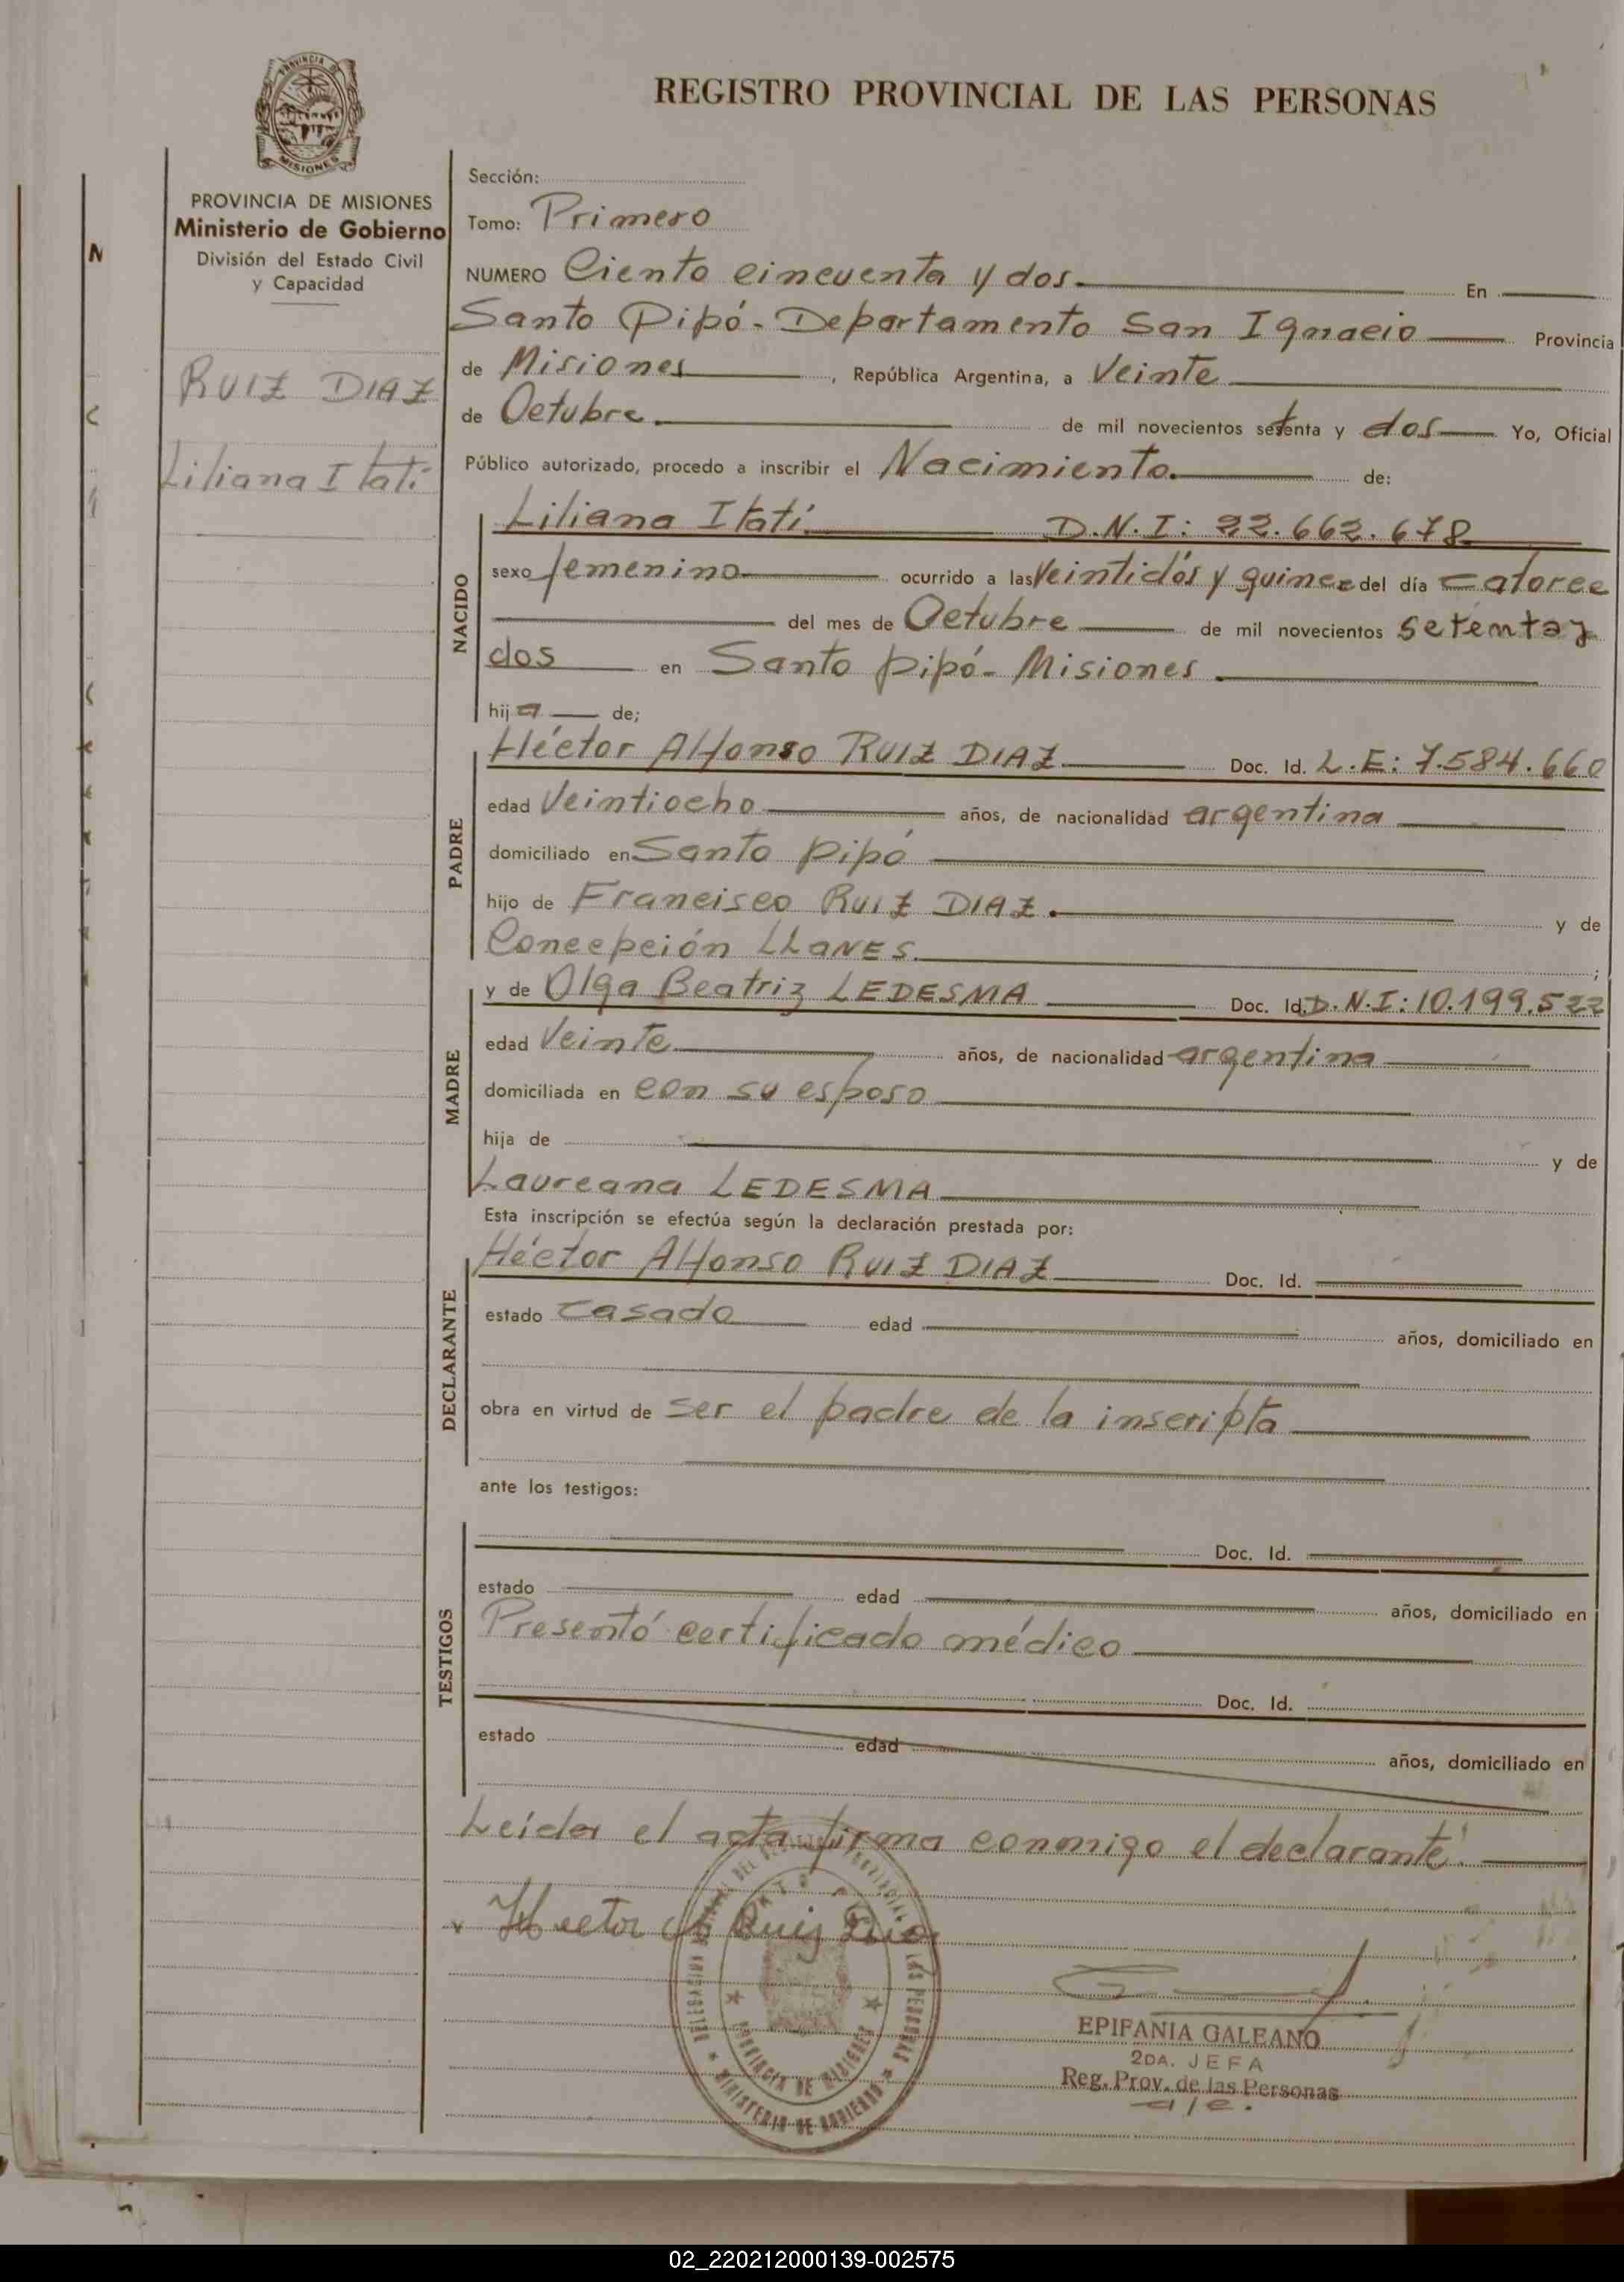 REGISTRO PROVINCIAL DE LAS PERSONAS
PROVINCIA DE MISIONES
Ministerio de Gobierno
División del Estado Civil
y Capacidad
RUIZ DIAZ
Liliana Itatí
Sección:
Tomo: Primero
NUMERO Ciento cincuenta y dos. En
Santo Pipó - Departamento San Ignacio Provincia
de Misiones, República Argentina, a Veinte
de Octubre. de mil novecientos setenta y dos Yo, Oficial
Público autorizado, procedo a inscribir el Nacimiento. de:
NACIDO
Liliana Itatí D.N.I: 22.662.678
sexo femenino ocurrido a las Veintidós y quince del día catorce
del mes de Octubre de mil novecientos setenta y
dos en Santo Pipó - Misiones.
hija de;
PADRE
Héctor Alfonso RUIZ DIAZ Doc. Id. L.E: 7.584.660
edad Veintiocho años, de nacionalidad argentina
domiciliado en Santo Pipó
hijo de Francisco RUIZ DIAZ. y de
Concepción LLANES. ;
MADRE
y de Olga Beatriz LEDESMA Doc. Id. D.N.I: 10.199.522
edad Veinte años, de nacionalidad argentina
domiciliada en con su esposo
hija de y de
Laureana LEDESMA
Esta inscripción se efectúa según la declaración prestada por:
DECLARANTE
Héctor Alfonso RUIZ DIAZ Doc. Id.
estado casado edad años, domiciliado en
obra en virtud de ser el padre de la inscripta
ante los testigos:
TESTIGOS
Doc. Id.
estado edad años, domiciliado en
Presentó certificado médico
Doc. Id.
estado edad años, domiciliado en
Leída el acta firma conmigo el declarante.
Hector A Ruiz Dia
PROVINCIA DE MISIONES
MINISTERIO DE GOBIERNO
EPIFANIA GALEANO
2DA. JEFA
Reg. Prov. de las Personas
a/c.
02_220212000139-002575